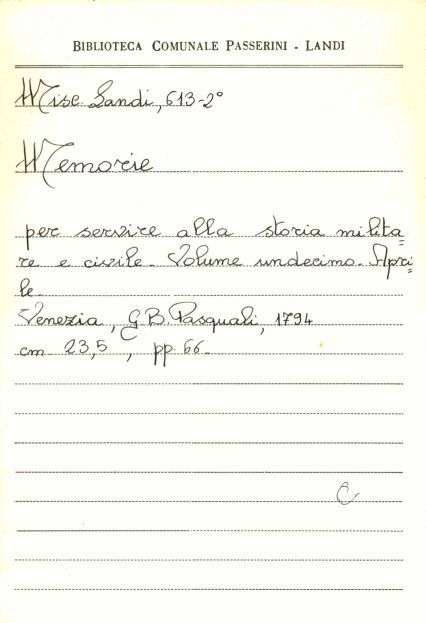 BIBLIOTECA COMUNALE PASSERINI - LANDI
Misc. Landi, 613-2°
Memorie
per servire alla storia milita=
re e civile. Volume undecimo. Apri=
le.
Venezia, G.B. Pasquali, 1794
cm 23,5, pp. 66.
C